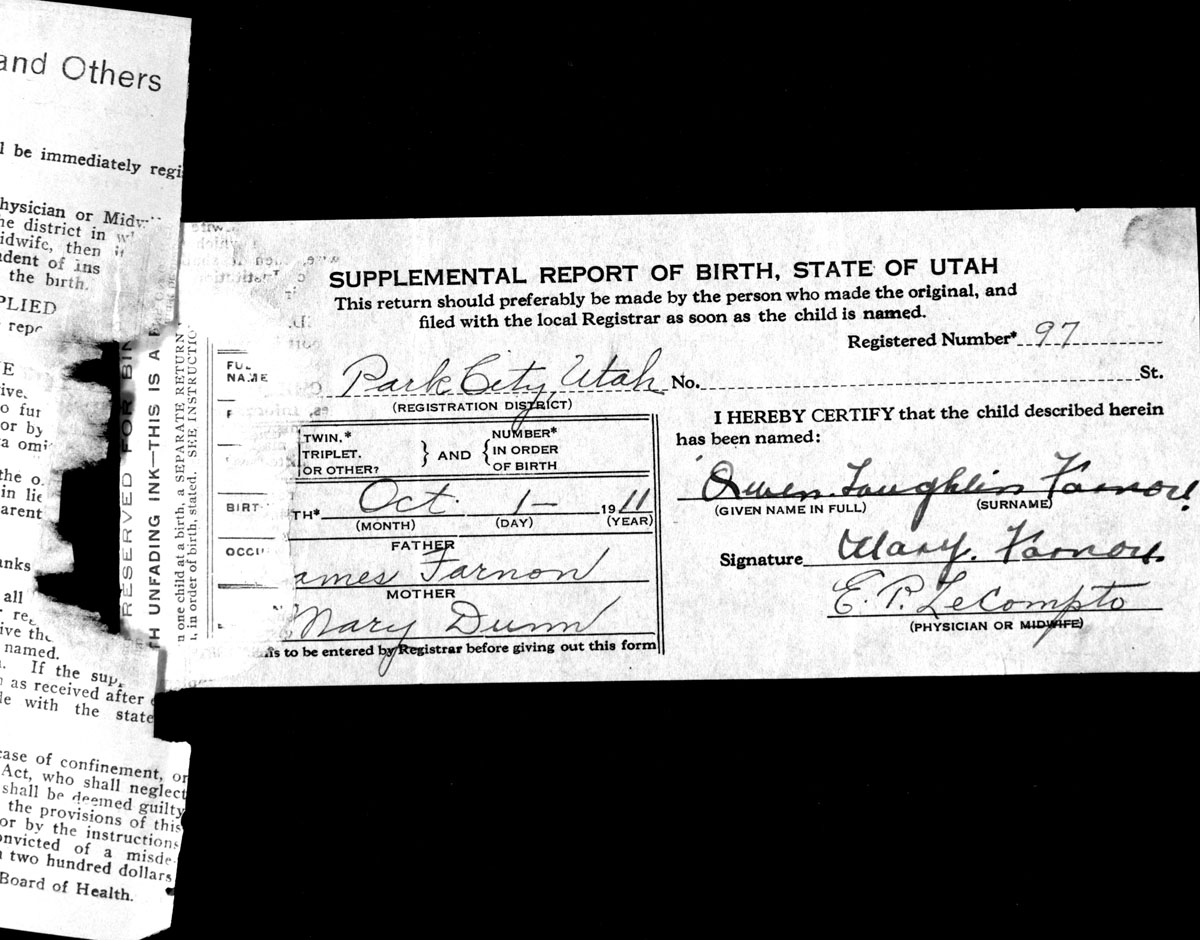 and Others
l be immediately regi
hysician or Midw
he district in w
idwife, then
dent of ins
the birth.
PLIED
repo
E
ive
o fur
or by
ta omi
the o
in lie
arent
anks
all
reg
ive the
named.
If the sup
n as received after
le with the state
case of confinement, or
Act, who shall neglect
shall be deemed guilty
the provisions of this
or by the instructions
onvicted of a misde-
n two hundred dollars
Board of Health.
RESERVED FOR BIN
TH UNFADING INK—THIS IS A
n one child at a birth, a SEPARATE RETURN
, in order of birth, stated. SEE INSTRUCTIO
SUPPLEMENTAL REPORT OF BIRTH, STATE OF UTAH
This return should preferably be made by the person who made the original, and
filed with the local Registrar as soon as the child is named.
Registered Number* 97
FUL
NAME
Park City, Utah No. St.
(REGISTRATION DISTRICT)
TWIN,*
TRIPLET,
OR OTHER?
} AND {
NUMBER*
IN ORDER
OF BIRTH
BIRT
TH* Oct. 1— 1911
(MONTH) (DAY) (YEAR)
OCCU
FATHER
ames Farnon
MOTHER
Mary Dunn
is to be entered by Registrar before giving out this form
I HEREBY CERTIFY that the child described herein
has been named:
Owen Loughlin Farnon
(GIVEN NAME IN FULL) (SURNAME)
Signature Mary Farnon
E. P. LeCompto
(PHYSICIAN OR MIDWIFE)